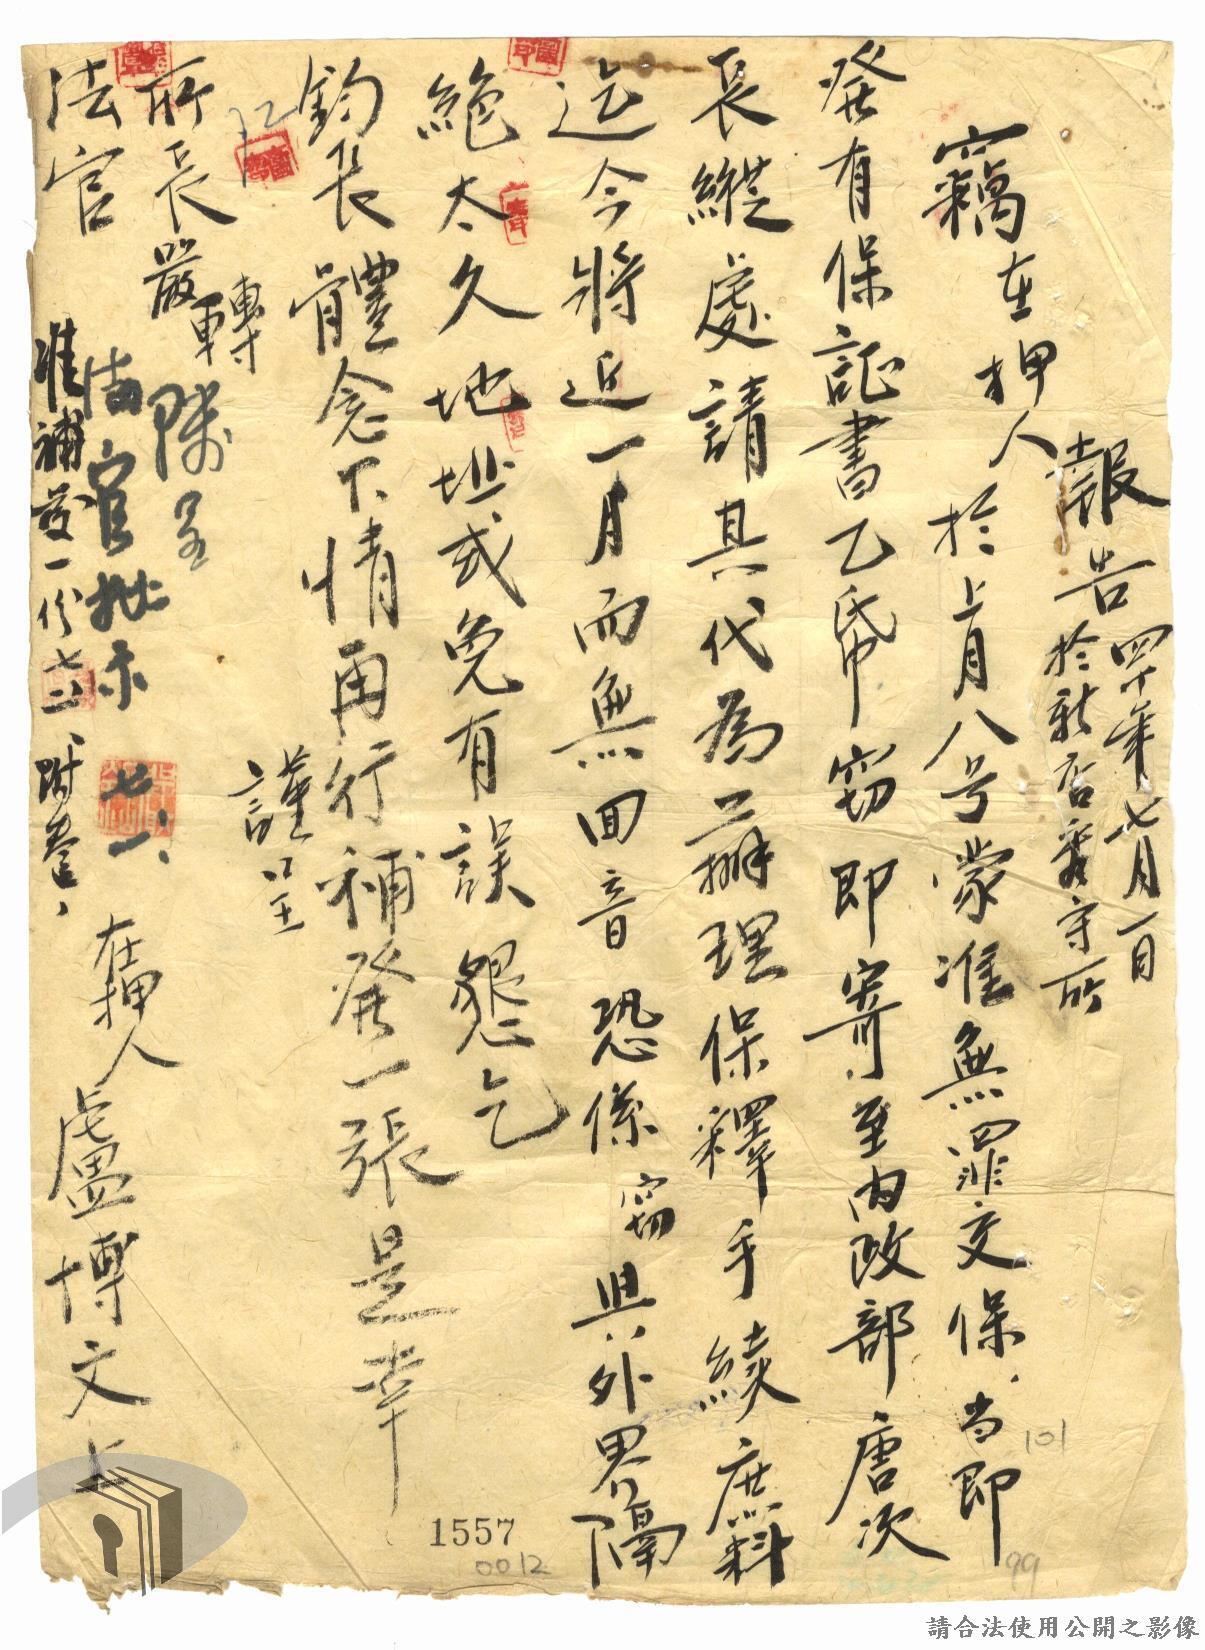 報告 四十年七月一日
於新店看守所
竊在押人於上月八号蒙准無罪交保、当即
發有保証書乙帋窃即寄至內政部唐次
長縱處請其代為辦理保釋手續庶料
迄今將近一月而無回音恐係窃與外界隔
絶太久地址或免有誤懇乞
鈞長體念下情再行補發一張是幸
謹呈
所長嚴轉
陳呈
法官
法官批示 七、一、
准補發一份 七、二、附卷、
在押人盧博文上
101
99
1557
0012
請合法使用公開之影像